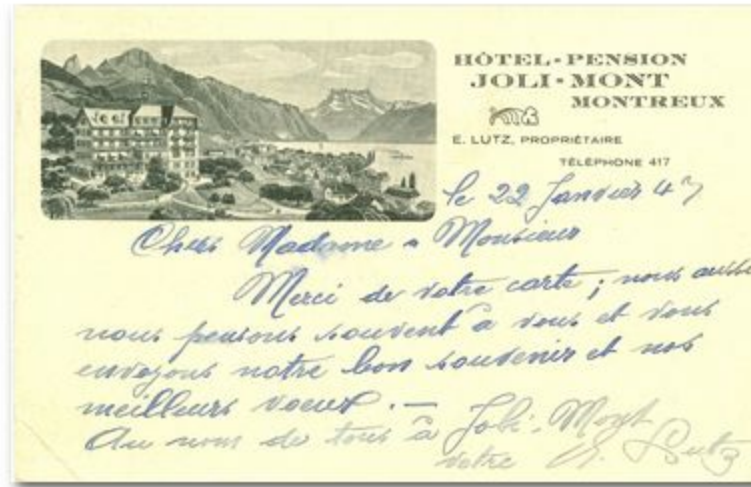 HÔTEL-PENSION
JOLI-MONT
MONTREUX
E. LUTZ, PROPRIÉTAIRE
TÉLÉPHONE 417
le 22 Janvier 47
Chers Madame & Monsieur
Merci de votre carte; nous aussi
nous pensons souvent à vous et vous
envoyons notre bon souvenir et nos
meilleurs voeux. —
Au nom de tous à Joli-Mont
votre E. Lutz